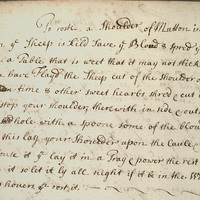 To roste a Shoulder of Mutton in
n yͤ Sheep is kild Save yͤ Bloud & spred yͤ
a Table that is wet that it may not thick
have Flayd the Sheep cut of the Shoulder o
time & other sweet hearbs shred cut
stop your shoulder therewith in side & out
hole with a spoone some of the blou
this lay your Shoulder upon the Caule
it yͤ lay it in a Tray & power the rest
it so let it ly all night if it be in the W
houers & rost it